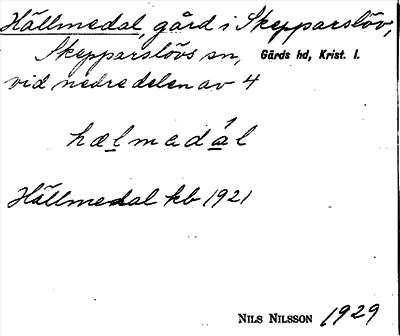 Hällmedal, gård i Skepparslöv,
Skepparslövs sn, Gärds hd, Krist. l.
vid nedre delen av 4
hælmedál
Hällmedal kb 1921
NILS NILSSON 1929